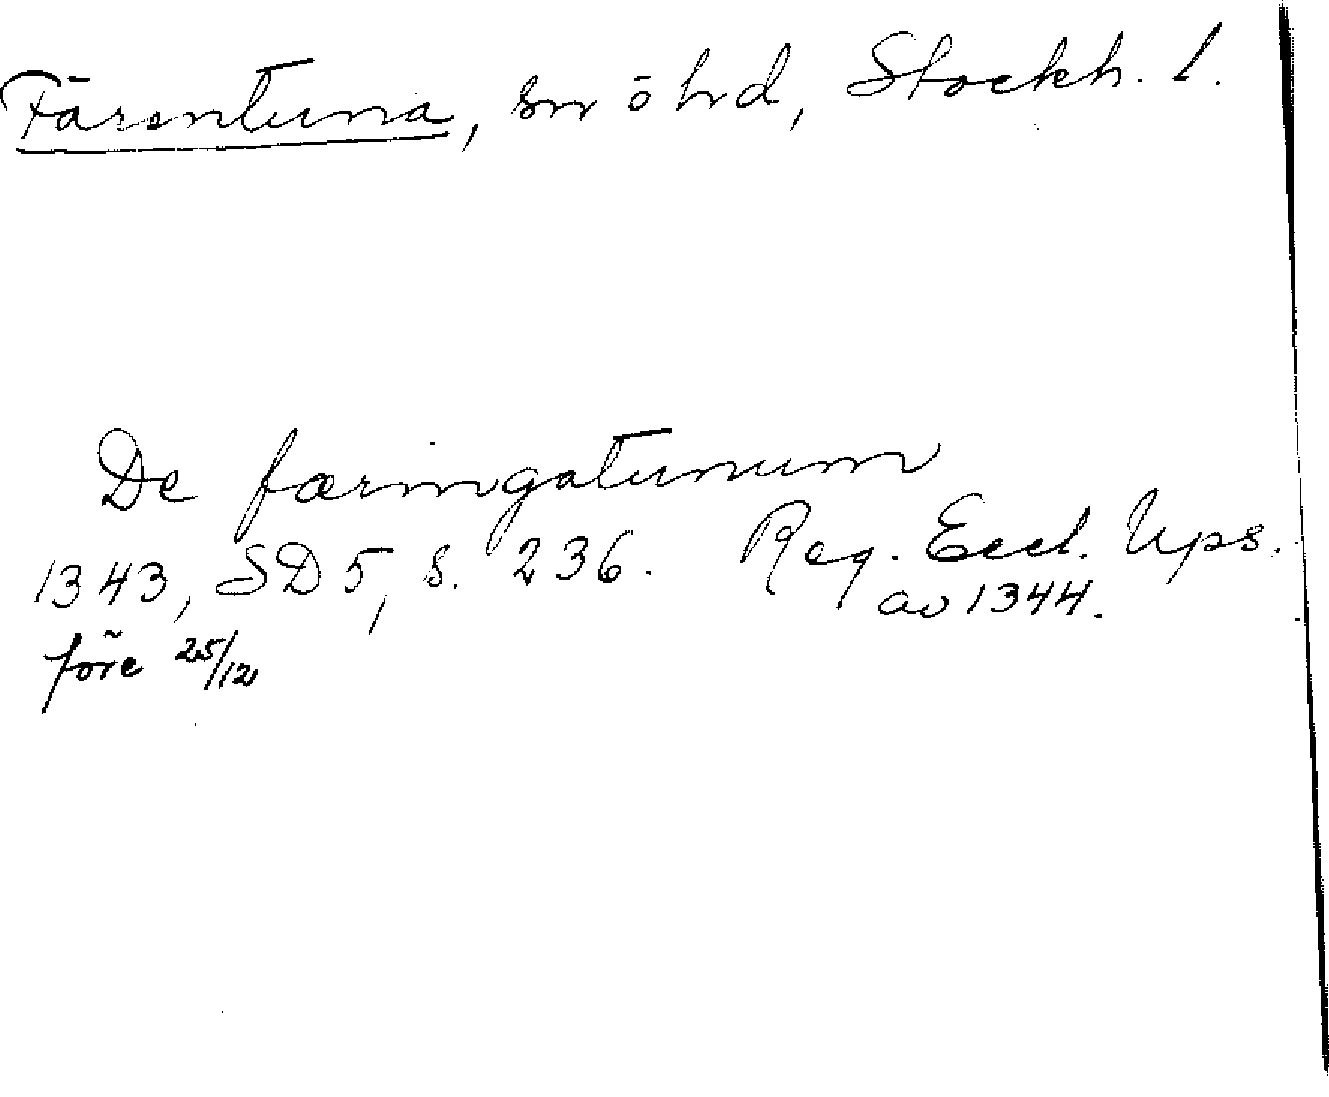 Färentuna, sn o hd, Stockh. l.
De færingatunum
1343, SD 5, s. 236. Reg. Eccl. Ups.
av 1344.
före 25/12